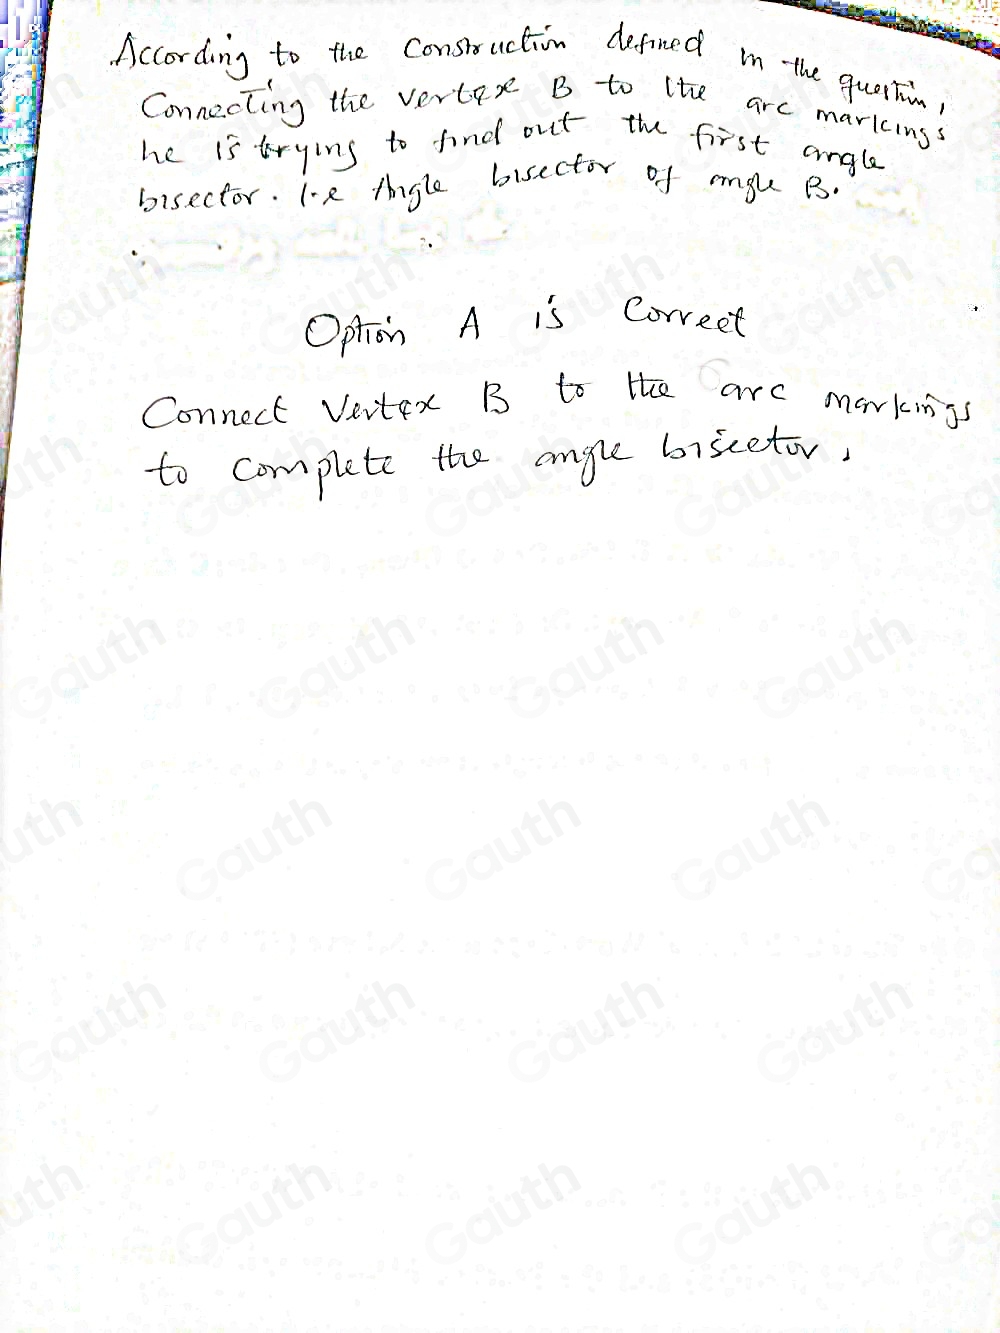 According to the construction defined in the question,
Connecting the vertex B to the arc markings
he is trying to find out the first angle
bisector. I.e Angle bisector of angle B.
Option A is Correct
Connect Vertex B to the arc markings
to complete the angle bisector,